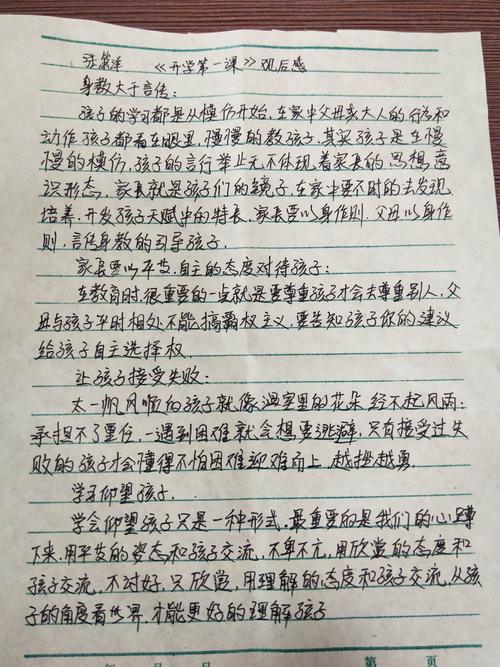 《开学第一课》观后感
身教大于言传:
孩子的学习都是从模仿开始,在家中父母亲大人的行为和
动作孩子都看在眼里,慢慢的教孩子,其实孩子是在慢
慢的模仿,孩子的言行举止无不体现着家长的思想,意
识形态,家长就是孩子们的镜子,在家中要不时的去发现
培养,开发孩子天赋中的特长,家长要以身作则,父母以身作
则,言传身教的引导孩子。
家长要以平等,自主的态度对待孩子:
在教育时,很重要的一点就是要尊重孩子才会去尊重别人,父
母与孩子平时相处不能搞霸权主义,要告知孩子你的建议
给孩子自主选择权.
让孩子接受失败:
太一帆风顺的孩子就像温室里的花朵经不起风雨;
承担不了重任,一遇到困难就会想要逃避,只有接受过失
败的孩子才会懂得不怕困难迎难而上,越挫越勇.
学习仰望孩子.
学会仰望孩子只是一种形式,最重要的是我们的心蹲
下来,用平等的姿态和孩子交流,不卑不亢,用欣赏的态度和
孩子交流,不讨好,只欣赏,用理解的态度和孩子交流,从孩
子的角度看世界,才能更好的理解孩子
年 月 日 第 页